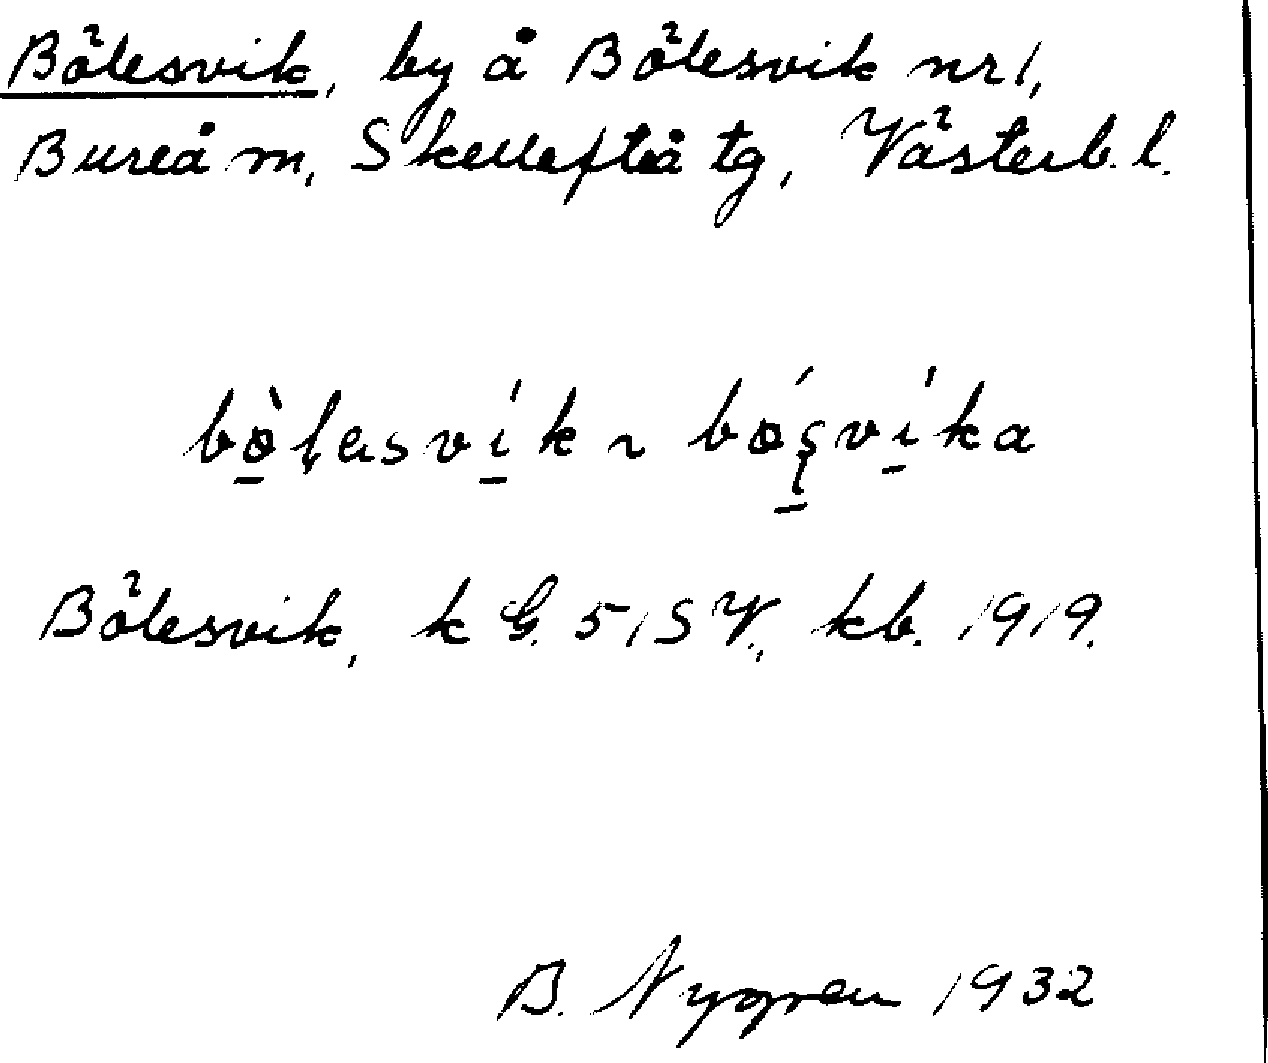 Bölesvik, by å Bölesvik nr 1,
Bureå m, Skellefteå tg, Västerb. l.
bø̀ḷesvík ~ bǿş̣víka
Bölesvik, k G. 51 SV., kb. 1919.
B. Nygren 1932